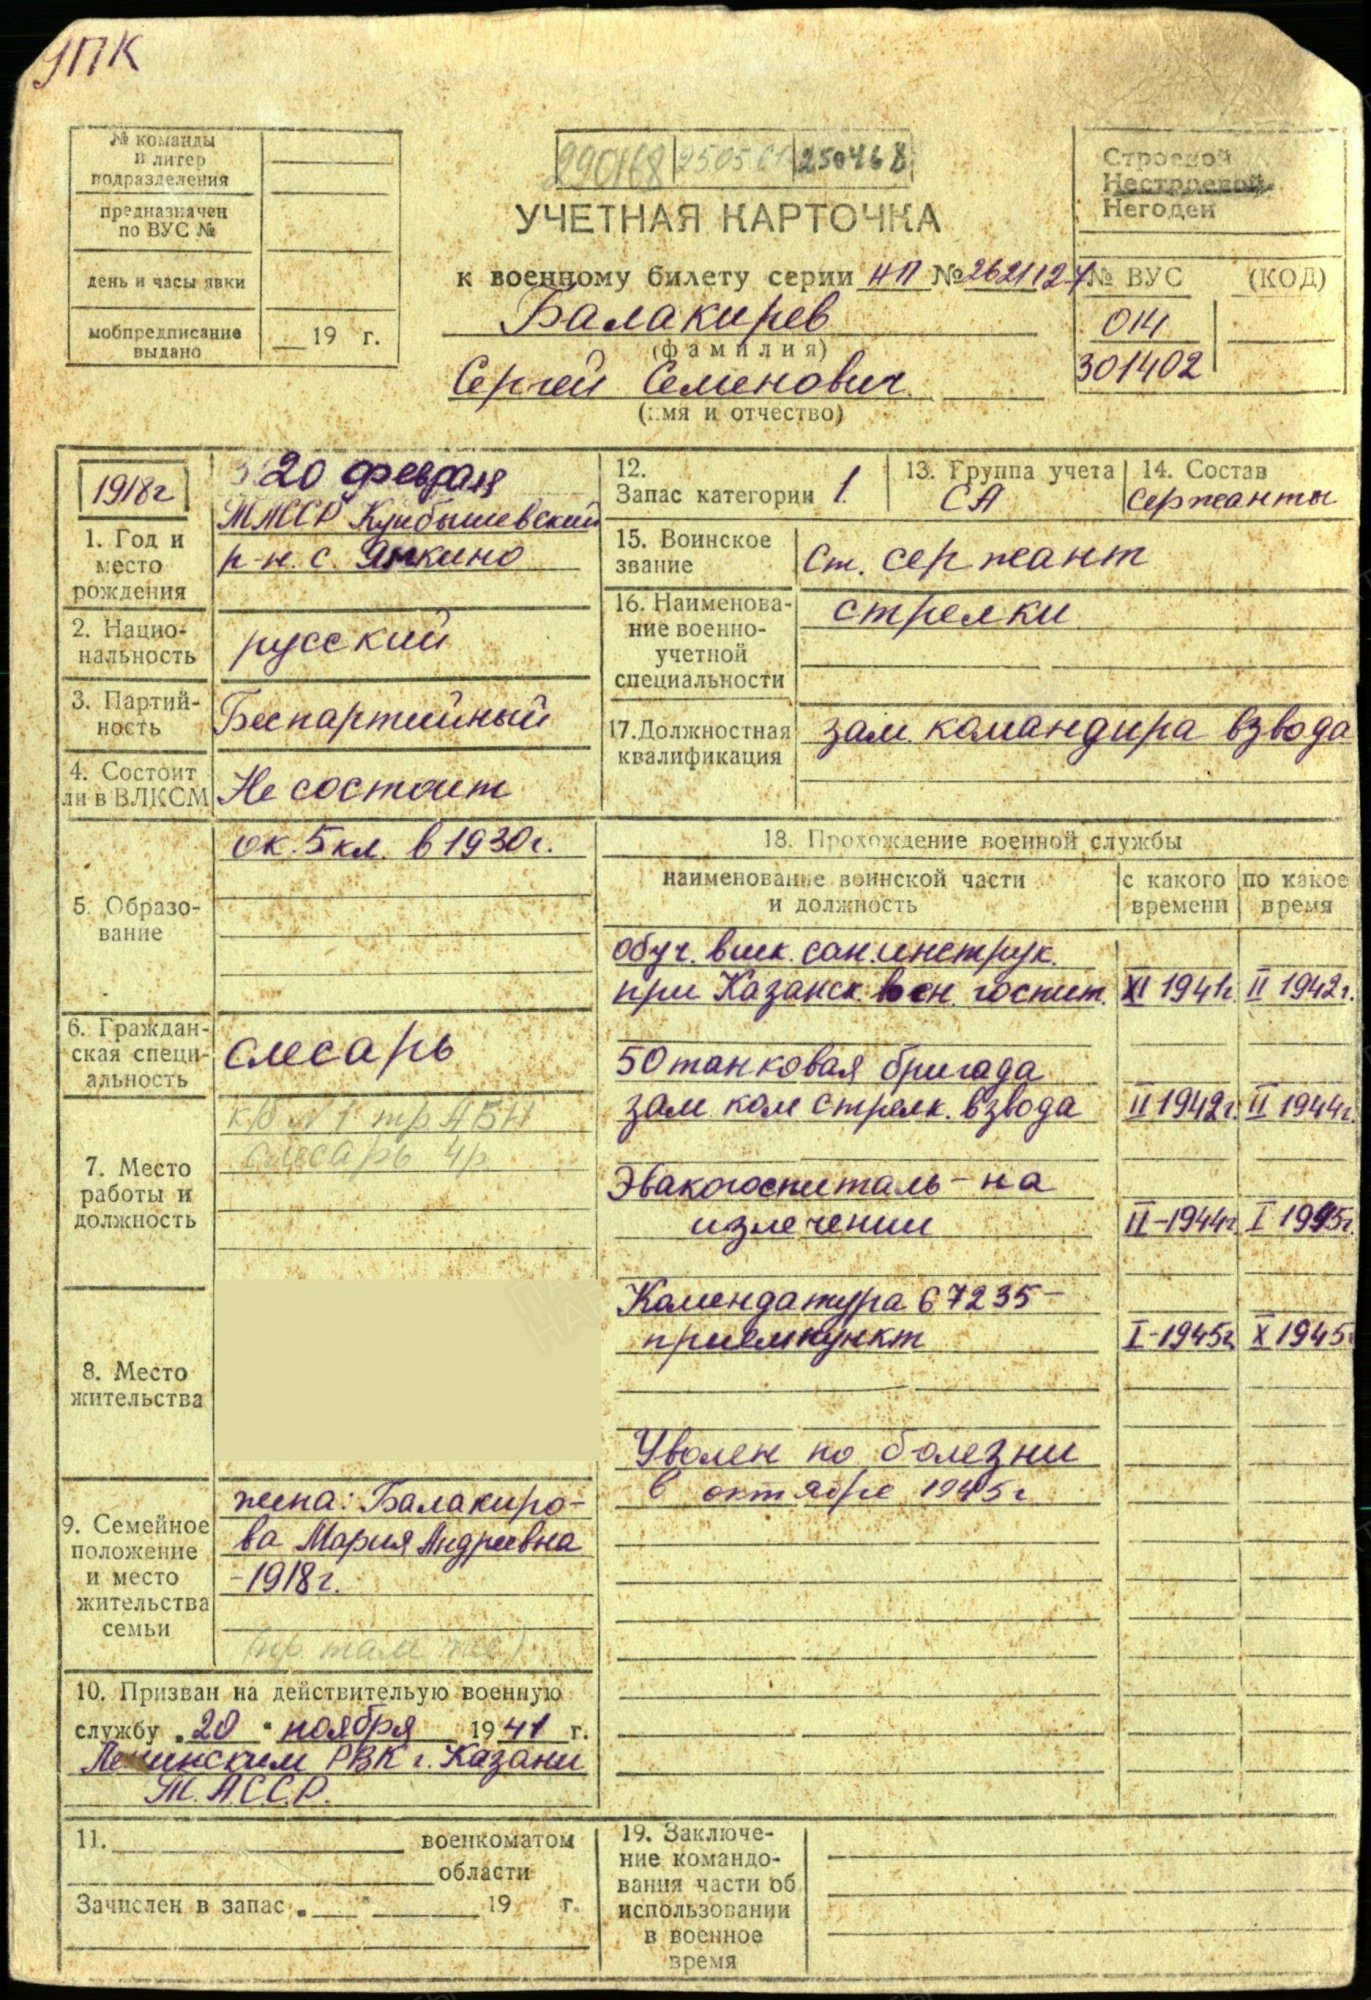 УПК
№ команды
и литер
подразделения
предназначен
по ВУС №
день и часы явки
мобпредписание
выдано
19 г.
290168 250561 250468
УЧЕТНАЯ КАРТОЧКА
к военному билету серии НП № 2621127
Балакирев
(фамилия)
Сергей Семенович
(имя и отчество)
Строевой
Нестроевой
Негоден
№ ВУС (КОД)
014
301402
1918г
1. Год и
место
рождения
20 февраля
ТАССР Куйбышевский
р-н. с. Янкино
2. Нацио-
нальность
русский
3. Партий-
ность
Беспартийный
4. Состоит
ли в ВЛКСМ
Не состоит
5. Образо-
вание
ок. 5 кл. в 1930г.
6. Граждан-
ская специ-
альность
слесарь
7. Место
работы и
должность
№1 тр
слесарь 4р
8. Место
жительства
9. Семейное
положение
и место
жительства
семьи
жена: Балакиро-
ва Мария Андреевна
-1918г.
(пр. там же)
10. Призван на действительую военную
службу „20" ноября 1941 г.
Ленинским РВК г. Казани
Т.А.С.С.Р.
11. военкоматом
области
Зачислен в запас „ " 19 г.
12.
Запас категории 1.
13. Группа учета
СА
14. Состав
Сержанты
15. Воинское
звание
Ст. сержант
16. Наименова-
ние военно-
учетной
специальности
стрелки
17. Должностная
квалификация
зам. командира взвода
18. Прохождение военной службы
наименование воинской части
и должность
с какого
времени
по какое
время
обуч. в шк. сан. инструк.
при Казанск. воен. госпит. XI 1941г. II 1942г.
50 танковая бригада
зам ком стрелк. взвода II 1942г. II 1944г.
Эвакогоспиталь - на
излечении II-1944г. I 1945г.
Комендатура 67235 -
приемпункт I-1945г. X 1945г
Уволен по болезни
в октябре 1945г
19. Заключе-
ние командо-
вания части об
использовании
в военное
время